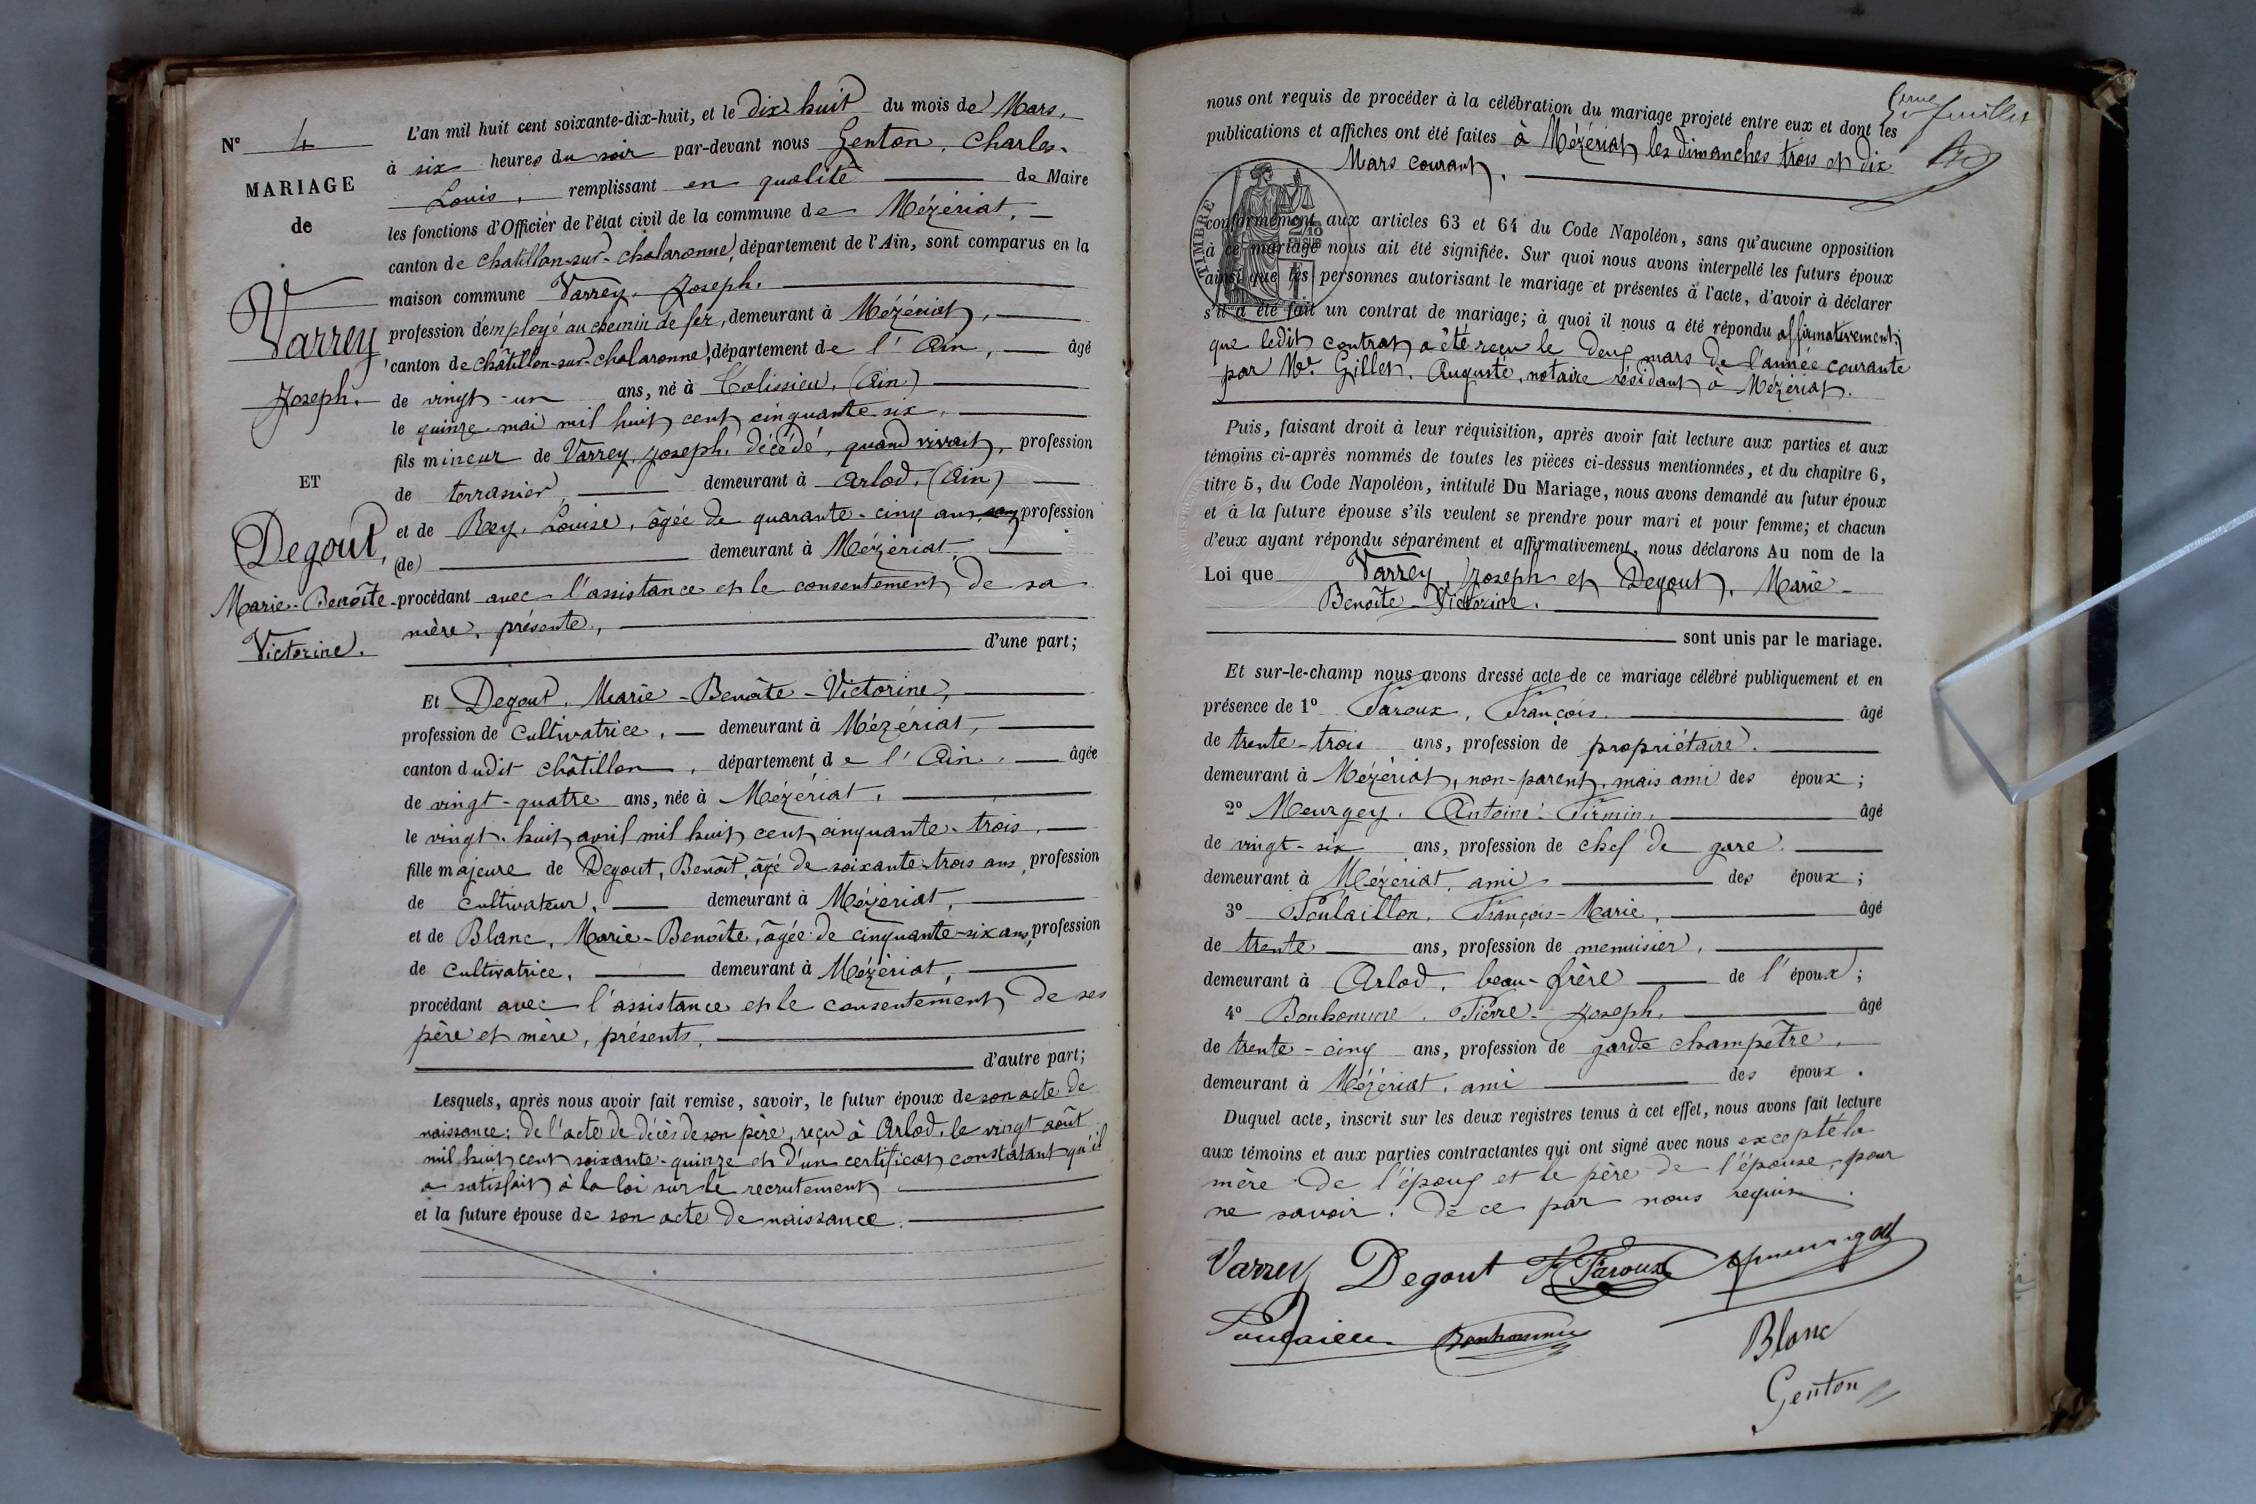 N° 4
MARIAGE
de
Varrey
Joseph.
ET
Degout,
Marie-Benoîte-
Victorine.
L'an mil huit cent soixante-dix-huit, et le dix huit du mois de Mars,
à six heures du soir par-devant nous Genton, Charles-
Louis, remplissant en qualité de Maire
les fonctions d'Officier de l'état civil de la commune de Mézériat,
canton de Chatillon-sur-Chalaronne, département de l'Ain, sont comparus en la
maison commune Varrey Joseph,
profession d'employé au chemin de fer, demeurant à Mézériat,
canton de Châtillon-sur-Chalaronne, département de l'Ain, âgé
de vingt-un ans, né à Colissieu, (Ain)
le quinze mai mil huit cent cinquante six,
fils mineur de Varrey, Joseph, décédé, quand vivait, profession
de terrassier, demeurant à Arlod, (Ain)
et de Rey, Louise, âgée de quarante-cinq ans, profession
(de) demeurant à Mézériat,
procédant avec l'assistance et le consentement de sa
mère, présente,
d'une part;
Et Degout, Marie-Benoîte-Victorine,
profession de cultivatrice, demeurant à Mézériat,
canton dudit Châtillon, département de l'Ain, âgée
de vingt-quatre ans, née à Mézériat,
le vingt-huit avril mil huit cent cinquante-trois,
fille majeure de Degout, Benoît, âgé de soixante-trois ans, profession
de cultivateur, demeurant à Mézériat,
et de Blanc, Marie-Benoîte, âgée de cinquante-six ans, profession
de cultivatrice, demeurant à Mézériat,
procédant avec l'assistance et le consentement de ses
père et mère, présents,
d'autre part;
Lesquels, après nous avoir fait remise, savoir, le futur époux de son acte de
naissance; de l'acte de décès de son père, reçu à Arlod, le vingt août
mil huit cent soixante-quinze et d'un certificat constatant qu'il
a satisfait à la loi sur le recrutement
et la future épouse de son acte de naissance.
feuillet
nous ont requis de procéder à la célébration du mariage projeté entre eux et dont les
publications et affiches ont été faites à Mézériat les dimanches trois et dix
Mars courant,
TIMBRE
conformément aux articles 63 et 64 du Code Napoléon, sans qu'aucune opposition
à ce mariage nous ait été signifiée. Sur quoi nous avons interpellé les futurs époux
ainsi que les personnes autorisant le mariage et présentes à l'acte, d'avoir à déclarer
s'il a été fait un contrat de mariage; à quoi il nous a été répondu affirmativement
que ledit contrat a été reçu le deux mars de l'année courante
par Me. Gillet, Auguste, notaire résidant à Mézériat.
Puis, faisant droit à leur réquisition, après avoir fait lecture aux parties et aux
témoins ci-après nommés de toutes les pièces ci-dessus mentionnées, et du chapitre 6,
titre 5, du Code Napoléon, intitulé Du Mariage, nous avons demandé au futur époux
et à la future épouse s'ils veulent se prendre pour mari et pour femme; et chacun
d'eux ayant répondu séparément et affirmativement, nous déclarons Au nom de la
Loi que Varrey, Joseph et Degout, Marie-
Benoîte-Victorine.
sont unis par le mariage.
Et sur-le-champ nous avons dressé acte de ce mariage célébré publiquement et en
présence de 1° Taroux, François, âgé
de trente-trois ans, profession de propriétaire,
demeurant à Mézériat, non-parent, mais ami des époux;
2° Meurgey, Antoine-Firmin, âgé
de vingt-six ans, profession de chef de gare
demeurant à Mézériat, ami des époux;
3° Poulaillon, François-Marie, âgé
de trente ans, profession de menuisier,
demeurant à Arlod, beau-frère de l'époux;
4° Bonhomme, Pierre-Joseph, âgé
de trente-cinq ans, profession de garde champêtre,
demeurant à Mézériat, ami des époux.
Duquel acte, inscrit sur les deux registres tenus à cet effet, nous avons fait lecture
aux témoins et aux parties contractantes qui ont signé avec nous excepté la
mère de l'époux et le père de l'épouse, pour
ne savoir, de ce par nous requis.
Varrey Degout F Taroux
Bonhomme
Blanc
Genton